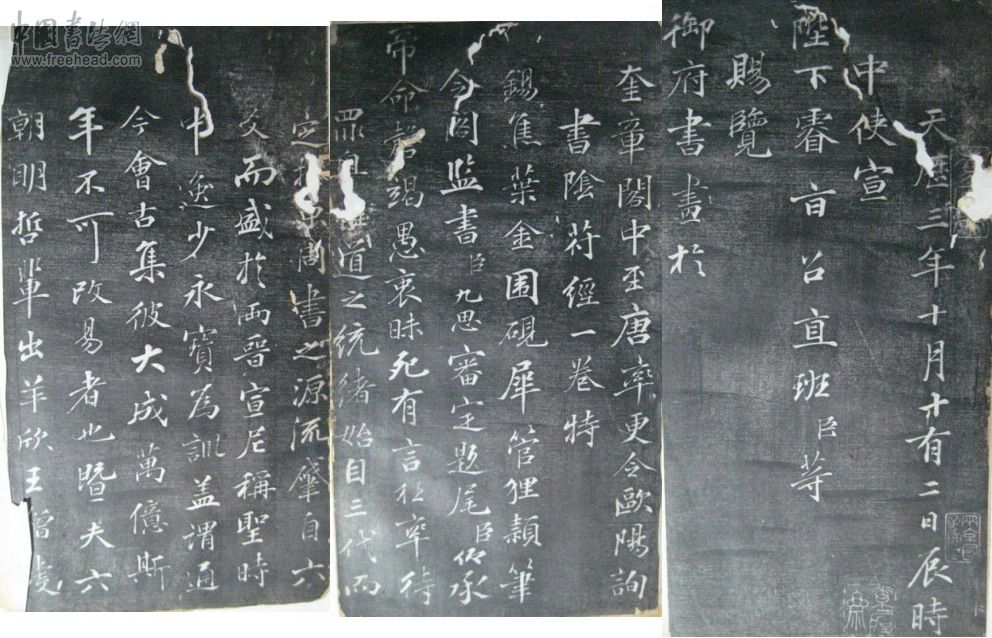 中國書法網
www.freehead.com
天曆三年十月十有二日辰時
中使宣
陛下睿旨召直班臣等
賜覽
御府書畫於
奎章閣中至唐率更令歐陽詢
書陰符經一卷特
錫蕉葉金圍硯犀管狸穎筆
令閣監書臣九思審定題尾臣仰承
帝命
竭愚衷昧死有言於率待
罪
道之統緒始自三代而
定
書之源流肇自六
爻而盛於兩晉宣尼稱聖時
中逸少永寶為訓蓋謂通
今會古集彼大成萬億斯
年不可改易者也暨夫六
朝明哲輩出羊欣王僧虔